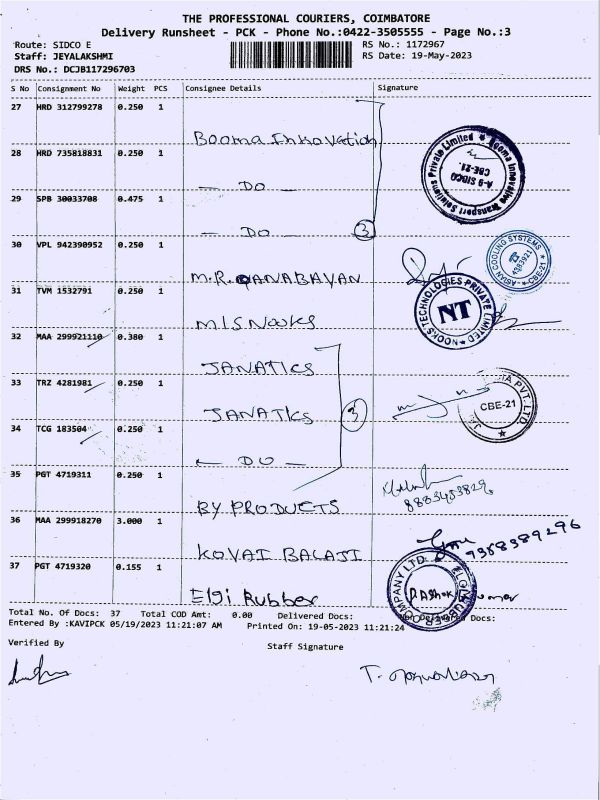 THE PROFESSIONAL COURIERS, COIMBATORE
Delivery Runsheet - PCK - Phone No.:0422-3505555 - Page No.:3
Route: SIDCO E RS No.: 1172967
Staff: JEYALAKSHMI RS Date: 19-May-2023
DRS No.: DCJB117296703
S No Consignment No Weight PCS Consignee Details Signature
27 HRD 312799278 0.250 1
Booma Innovation
28 HRD 735818831 0.250 1
— DO —
29 SPB 30033708 0.475 1
— DO — 3
30 VPL 942390952 0.250 1
M.R.
31 TVM 1532791 0.250 1
M/S NOOKS
32 MAA 299921110 0.380 1
JANATICS
33 TRZ 4281981 0.250 1
JANATICS 3
34 TCG 183504 0.250 1
— DO —
35 PGT 4719311 0.250 1
BY PRODUCTS
36 MAA 299918270 3.000 1
KOVAI BALAJI
37 PGT 4719320 0.155 1
Elgi Rubber
Booma Innovative Transport Solutions Private Limited
A-9 SIDCO
CBE-21.
COOLING SYSTEMS
CBE-21
NOOKS TECHNOLOGIES PRIVATE LIMITED
NT
PVT. LTD.
CBE-21
9358389296
Total No. Of Docs: 37 Total COD Amt: 0.00 Delivered Docs: Docs:
Entered By :KAVIPCK 05/19/2023 11:21:07 AM Printed On: 19-05-2023 11:21:24
Verified By Staff Signature